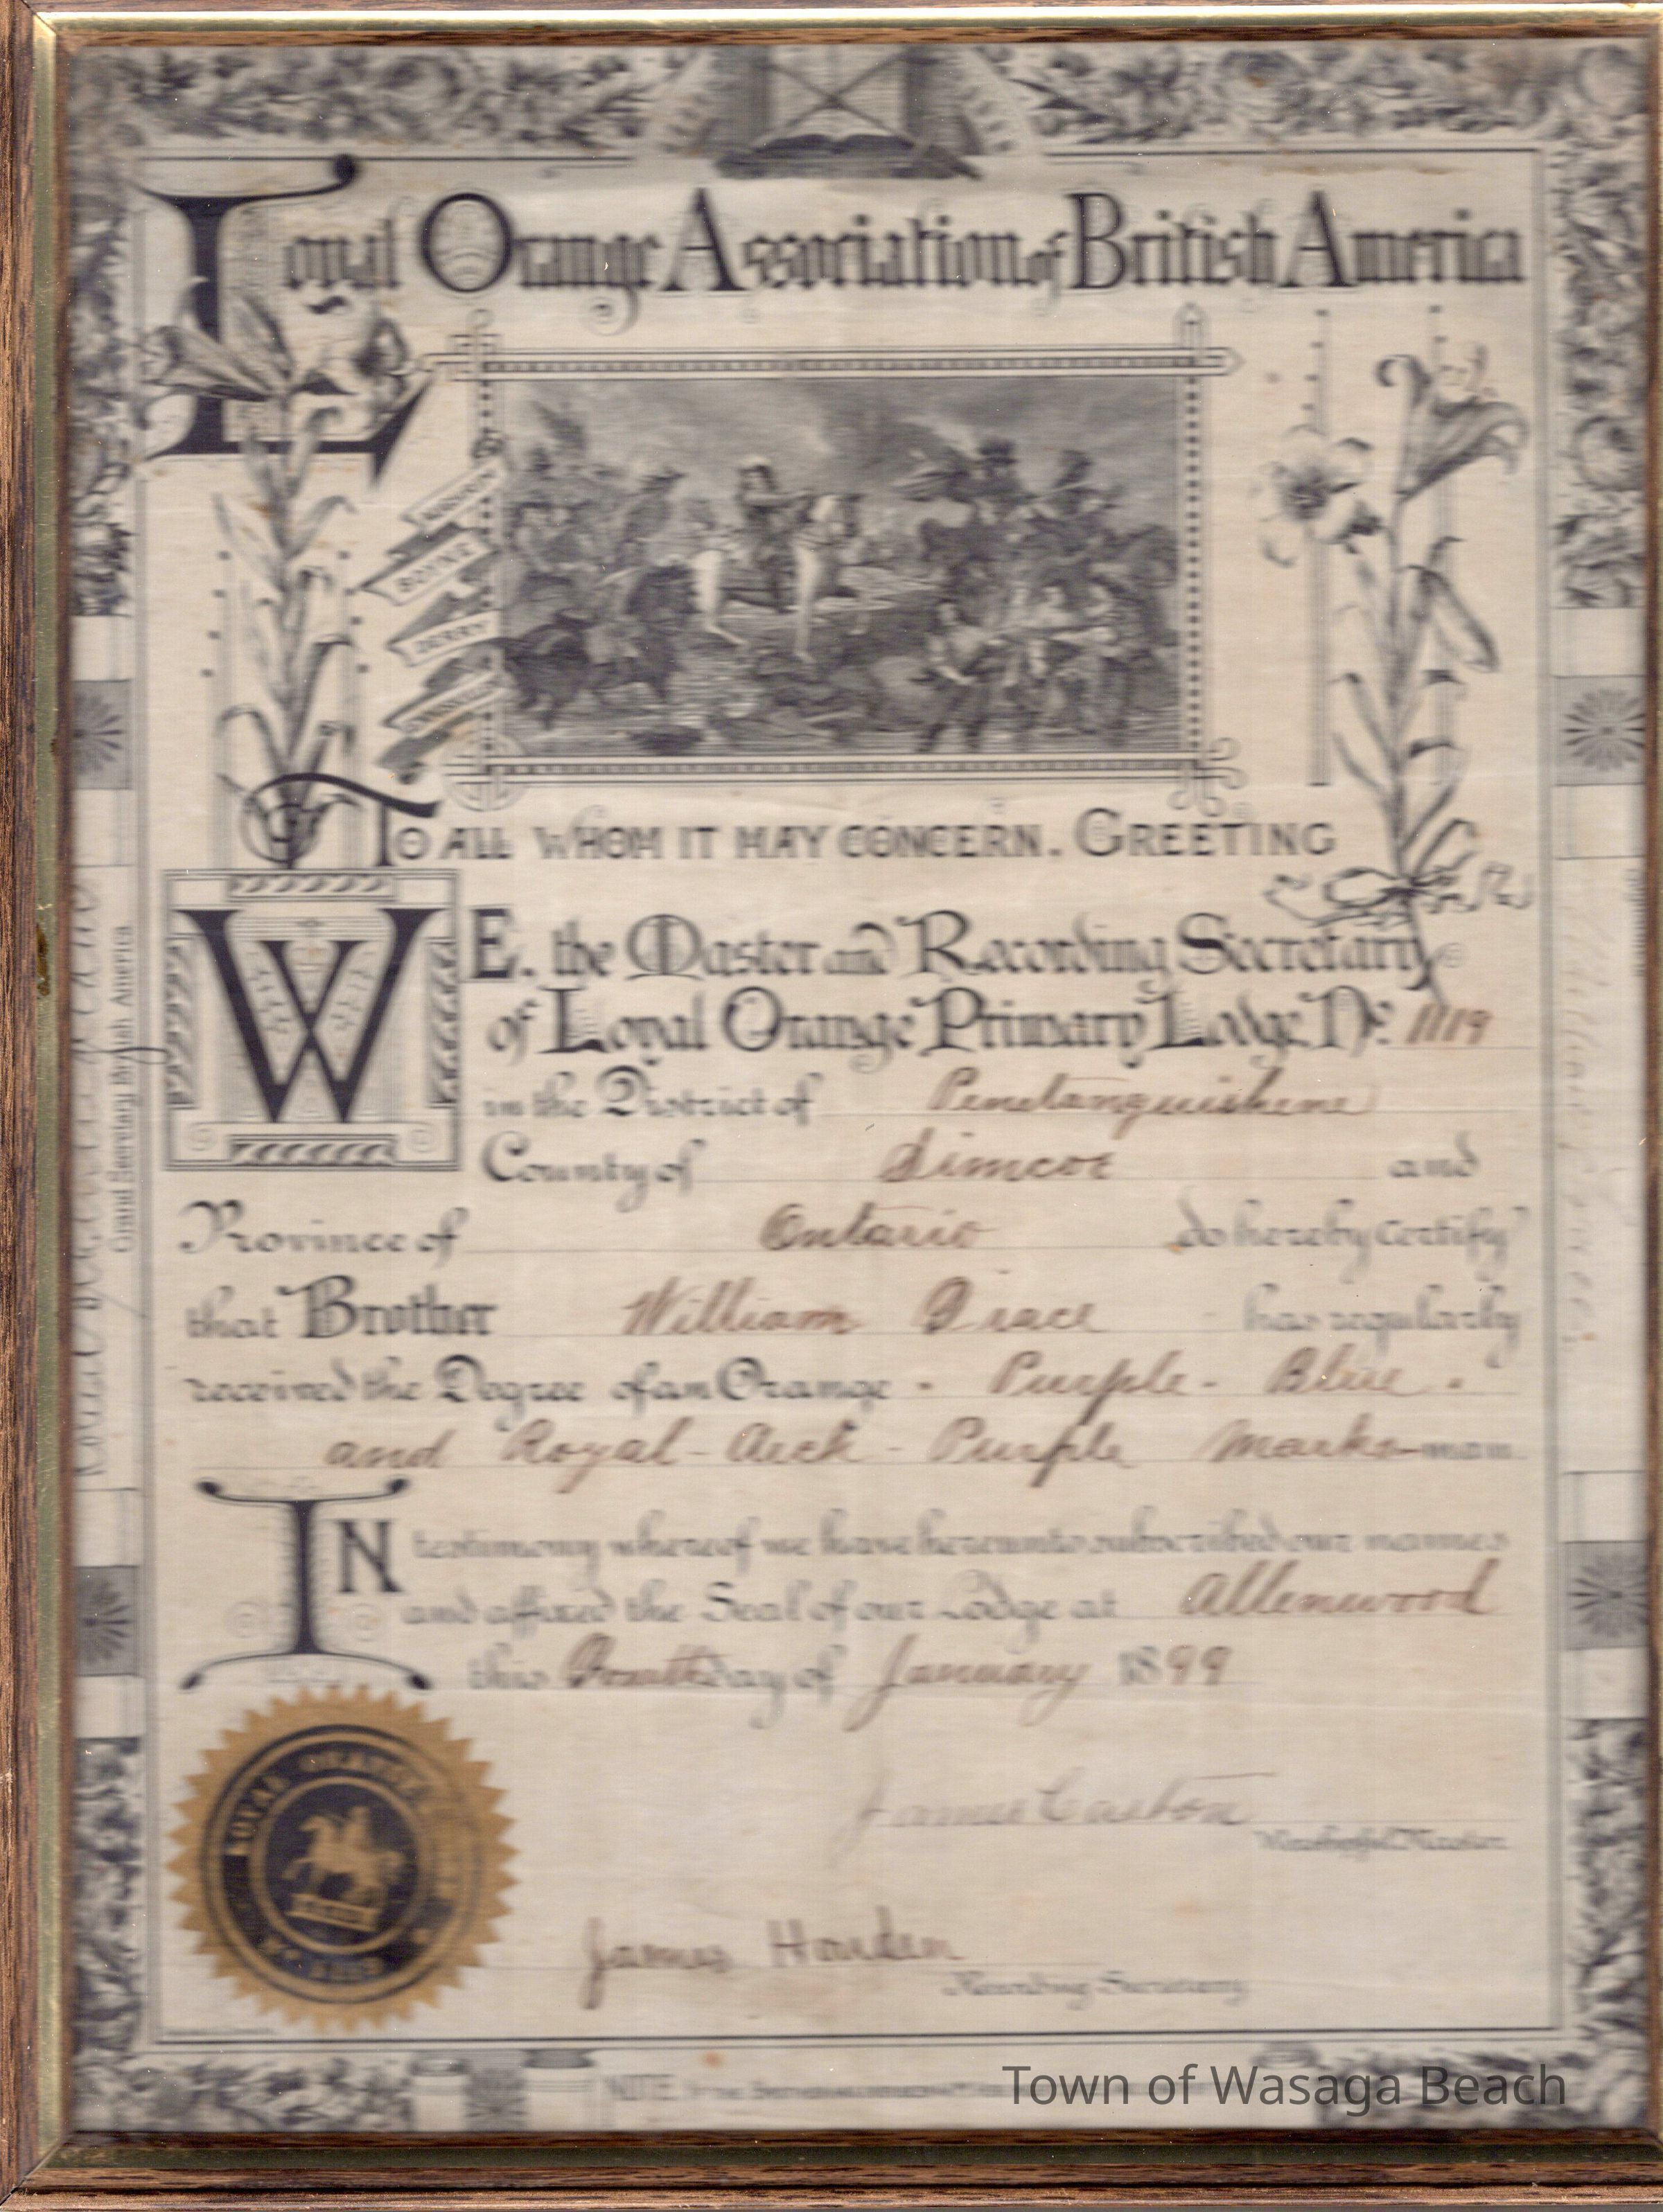 Loyal Orange Association of British America
AUGHRIM
BOYNE
DERRY
ENNISKILLEN
To ALL WHOM IT MAY CONCERN. GREETING
WE, the Master and Recording Secretary
of Loyal Orange Primary Lodge No. 1119
in the District of Penetanguishene
County of Simcoe and
Province of Ontario do hereby certify
that Brother William Grace has regularly
received the Degree of an Orange - Purple - Blue -
and Royal - Arch - Purple Marks-man
IN testimony whereof we have hereunto subscribed our names
and affixed the Seal of our Lodge at Allenwood
this Fourth day of January 1899
James Caston
Worshipful Master
James Harden
Recording Secretary
LOYAL ORANGE
No 1119
Grand Secretary British America
NOTE
Town of Wasaga Beach